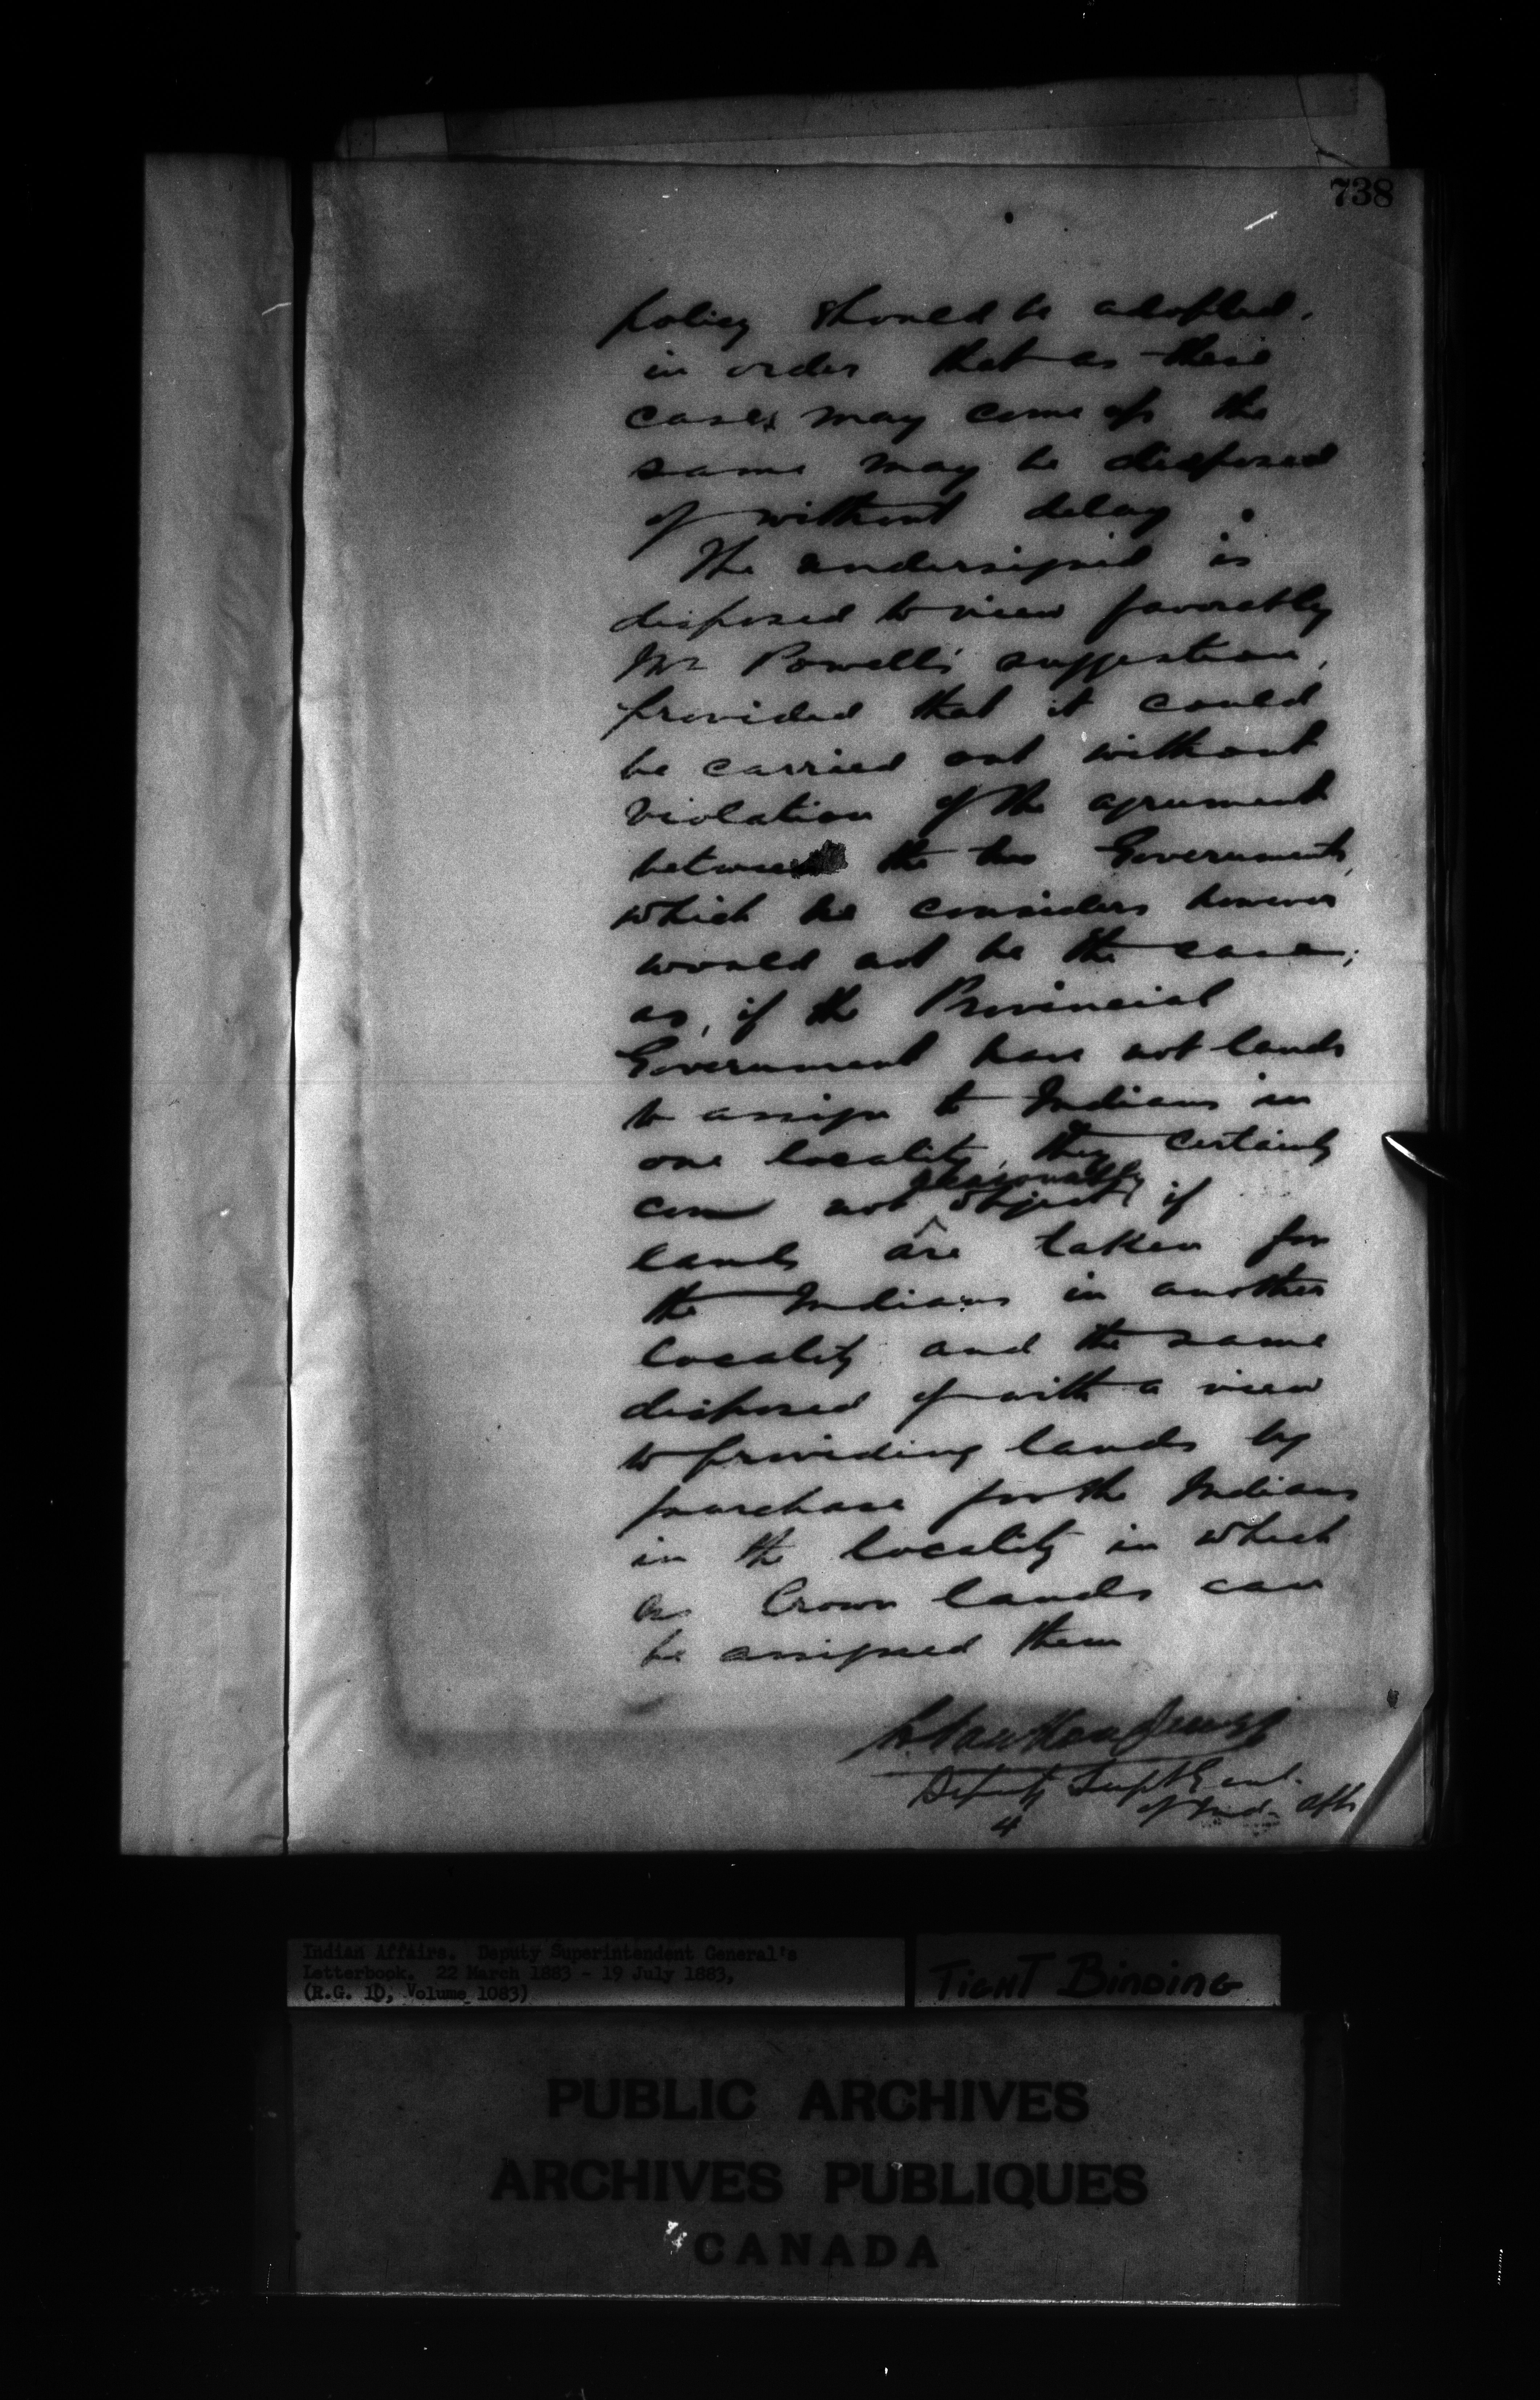 738
policy should be adopted,
in order that as these
cases may come up the
same may be disposed
of without delay.
The undersigned is
disposed to view favorably
Mr Powell's suggestion,
provided that it could
be carried out without
violation of the agreement
between the two Governments,
which he considers however
would not be the case;
as, if the Provincial
Government have not lands
to assign to Indians in
one locality, they certainly
reasonably
can not object, if
lands are taken for
the Indians in another
locality and the same
disposed of with a view
to providing lands by
purchase for the Indians
in the locality in which
Crown lands can
be assigned them
L. Vankoughnet
Deputy Supt Genl.
of Ind. Affs
4
Indian Affairs. Deputy Superintendent General's
Letterbook. 22 March 1883 - 19 July 1883,
(R.G. 10, Volume 1083)
TIGHT BINDING
PUBLIC ARCHIVES
ARCHIVES PUBLIQUES
CANADA